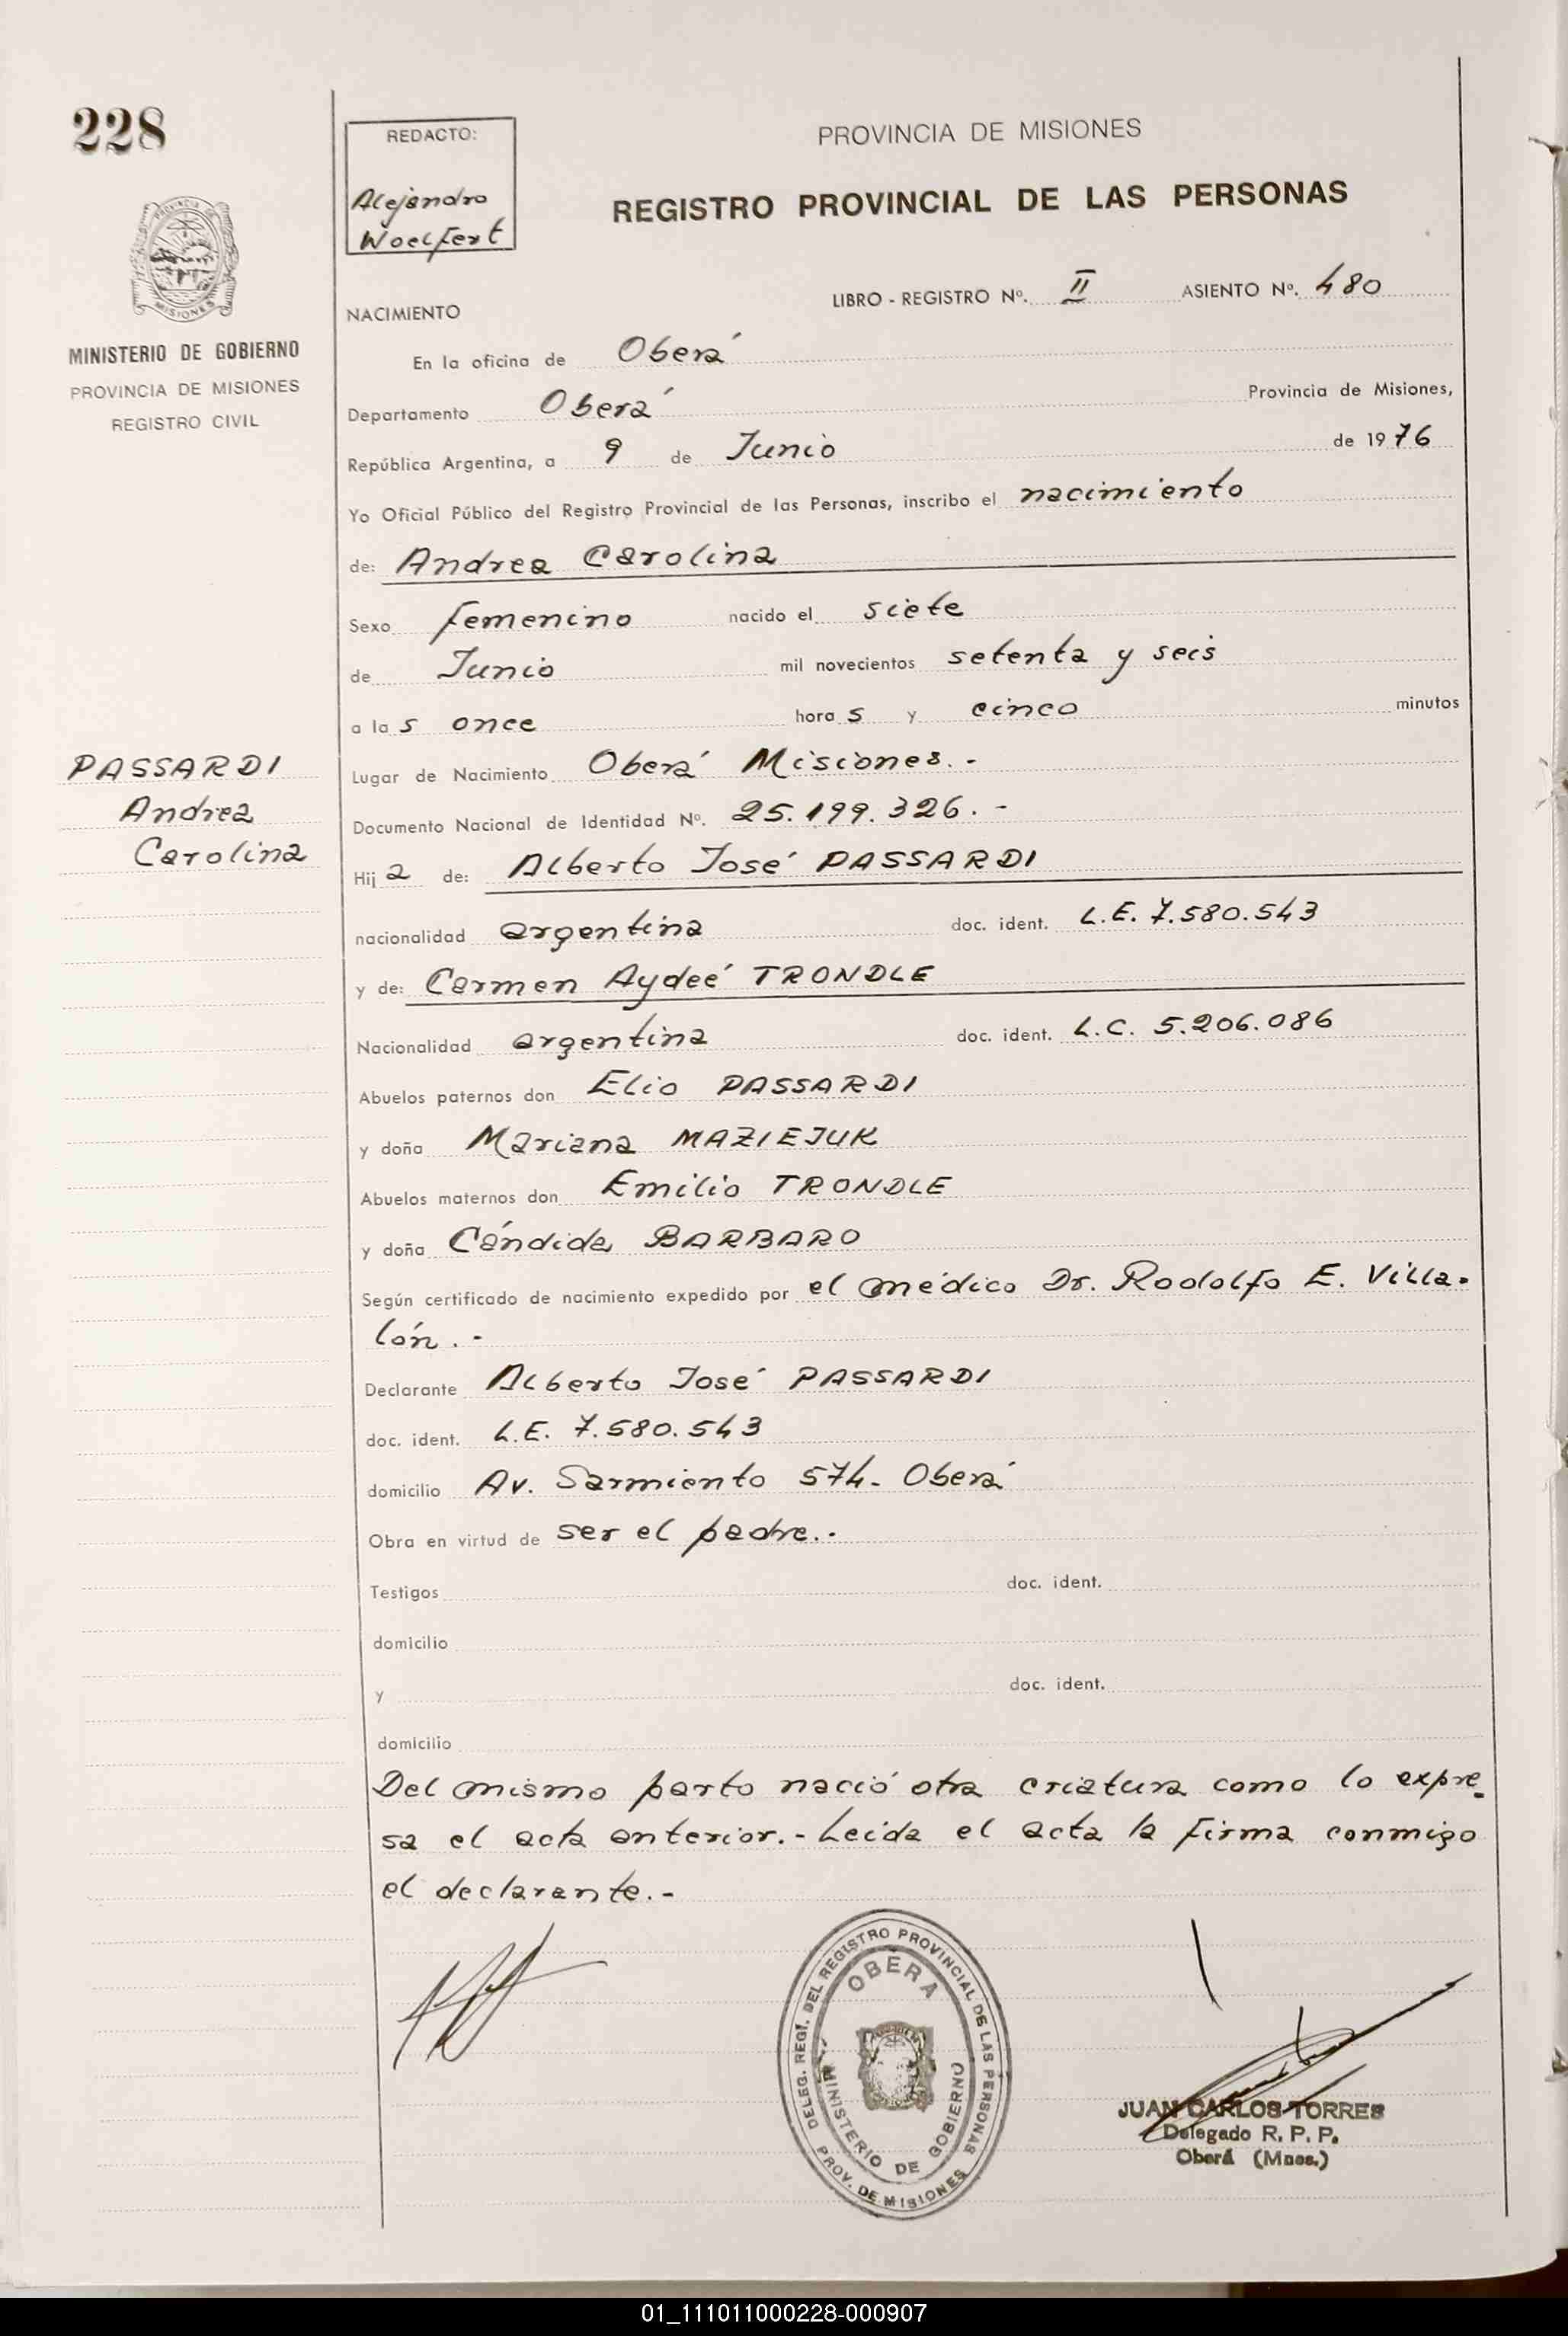 228
REDACTO:
Alejandro
Woelfert
PROVINCIA DE MISIONES
REGISTRO PROVINCIAL DE LAS PERSONAS
PROVINCIA DE
MISIONES
MINISTERIO DE GOBIERNO
PROVINCIA DE MISIONES
REGISTRO CIVIL
LIBRO - REGISTRO Nº. II ASIENTO Nº. 480
NACIMIENTO
En la oficina de Oberá
Departamento Oberá Provincia de Misiones,
República Argentina, a 9 de Junio de 1976
Yo Oficial Público del Registro Provincial de las Personas, inscribo el nacimiento
de: Andrea Carolina
Sexo femenino nacido el siete
de Junio mil novecientos setenta y seis
a las once horas y cinco minutos
PASSARDI
Andrea
Carolina
Lugar de Nacimiento Oberá Misiones.-
Documento Nacional de Identidad Nº. 25.199.326.-
Hija de: Alberto José PASSARDI
nacionalidad argentina doc. ident. L.E. 7.580.543
y de: Carmen Aydeé TRONDLE
Nacionalidad argentina doc. ident. L.C. 5.206.086
Abuelos paternos don Elio PASSARDI
y doña Mariana MAZIEJUK
Abuelos maternos don Emilio TRONDLE
y doña Cándida BARBARO
Según certificado de nacimiento expedido por el médico Dr. Rodolfo E. Villa-
lón.-
Declarante Alberto José PASSARDI
doc. ident. L.E. 7.580.543
domicilio Av. Sarmiento 574- Oberá
Obra en virtud de ser el padre.-
Testigos doc. ident.
domicilio
y doc. ident.
domicilio
Del mismo parto nació otra criatura como lo expre-
sa el acta anterior.- Leida el acta la firma conmigo
el declarante.-
DELEG. REGI. DEL REGISTRO PROVINCIAL DE LAS PERSONAS
OBERA
MINISTERIO DE GOBIERNO
PROV. DE MISIONES
JUAN CARLOS TORRES
Delegado R. P. P.
Oberá (Mnes.)
01_111011000228-000907